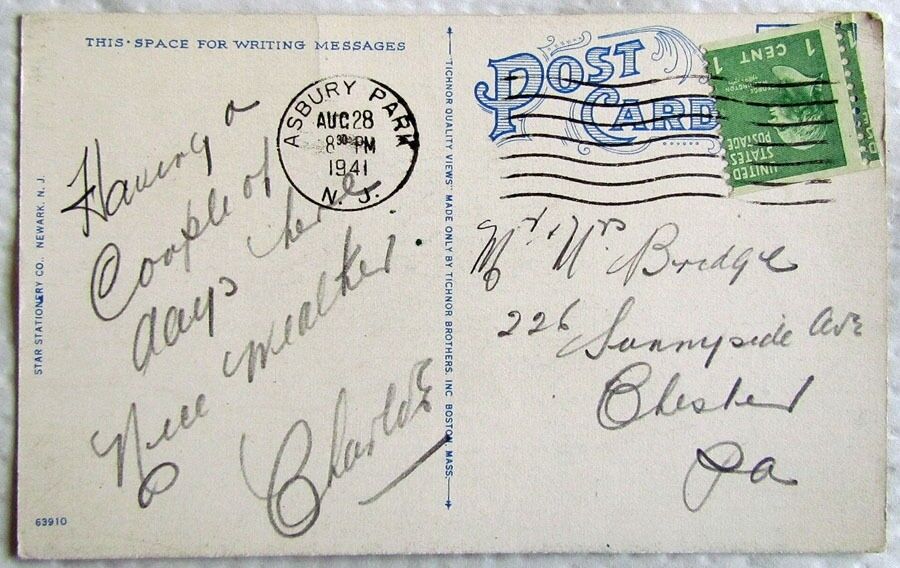 THIS SPACE FOR WRITING MESSAGES
Having a
Couple of
days here
Nice weather.
STAR STATIONERY CO., NEWARK, N. J.
63910
ASBURY PARK
AUG 28
8 30 PM
1941
N. J.
TICHNOR QUALITY VIEWS" MADE ONLY BY TICHNOR BROTHERS, INC BOSTON, MASS.
POST
CARD
1 CENT 1
UNITED
STATES
POSTAGE
Mr Mrs Bridge
226 Sunnyside Ave
Chester
Pa